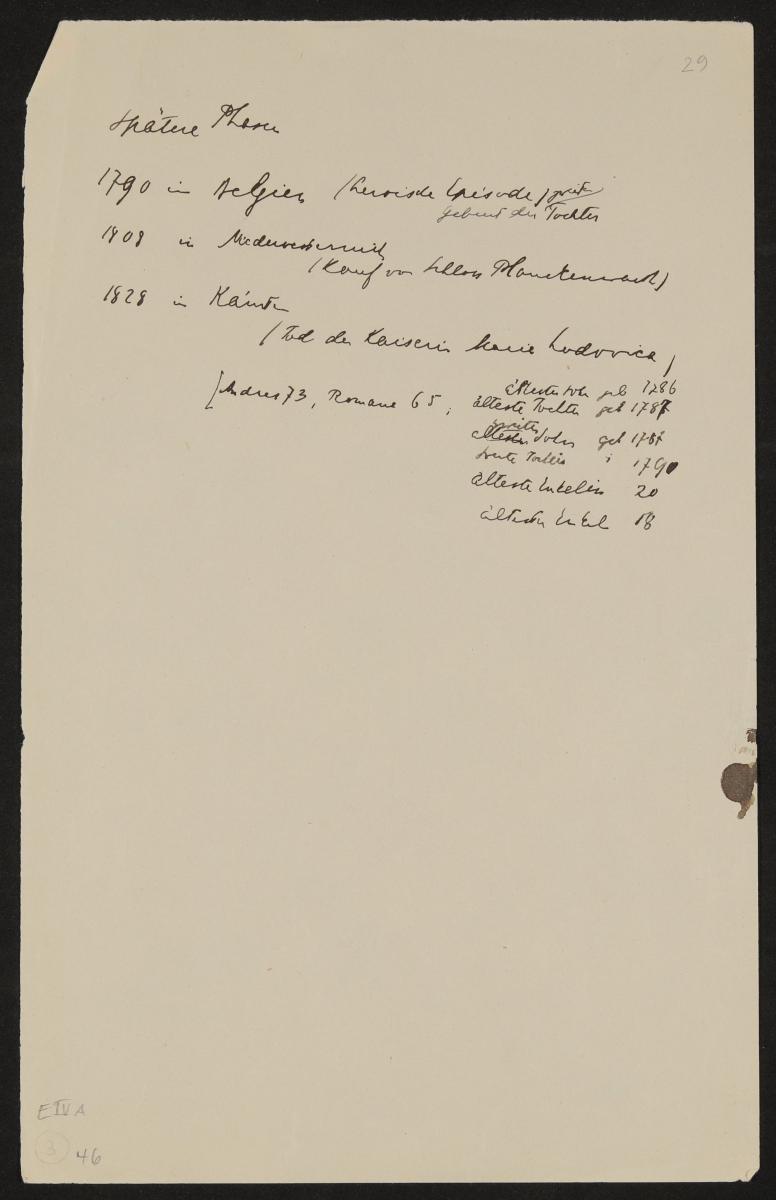 29
Spätere Phasen
1790 in Belgien (heroische Episode, zweite
Geburt der Tochter
1808 in Niederösterreich
(Kauf von Schloss Planckenwarth)
1828 in Kärnten
(Tod der Kaiserin Maria Ludovica)
[Andres 73, Romane 65,
ältester Sohn geb 1786
älteste Tochter geb 1787
zweiter Sohn geb 1787
zweite Tochter 1790
älteste Enkelin 20
ältester Enkel 18
E IV A
3 46